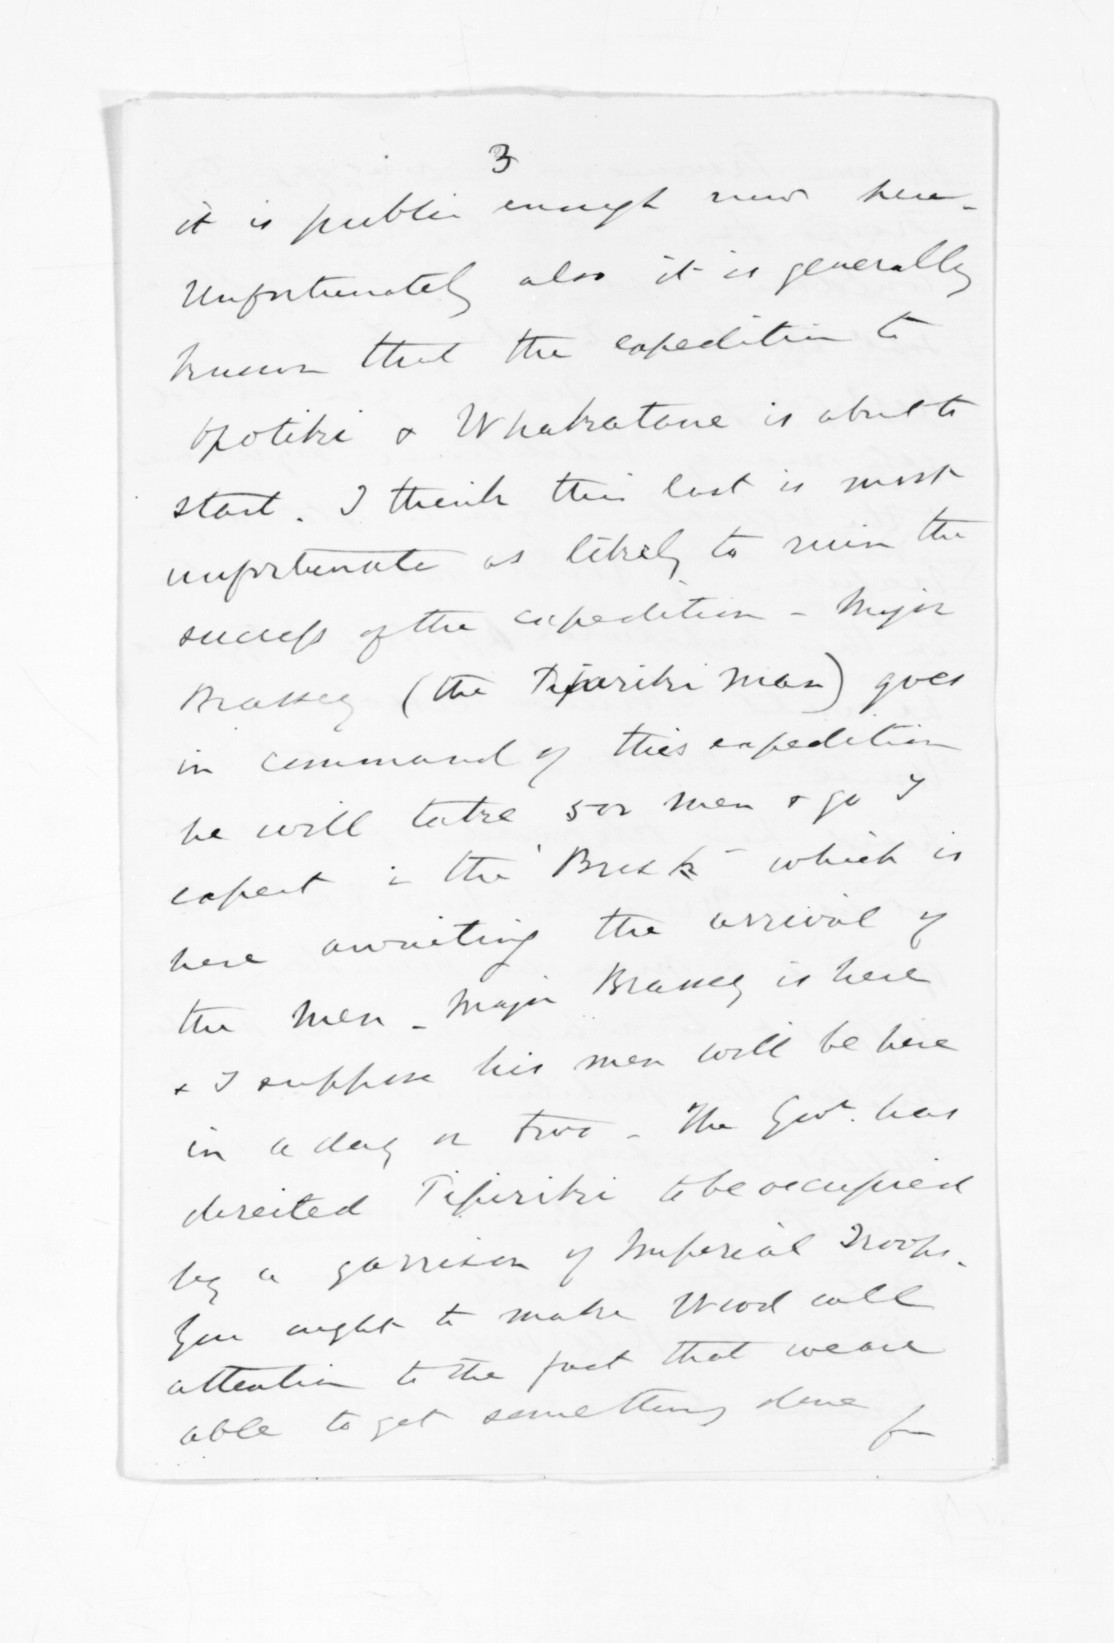 3
it is public enough now here -
Unfortunately also it is generally
known that the expedition to
Opotiki & Whakatane is about to
start. I think this last is most
unfortunate as likely to ruin the
success of the expedition - Major
Brassey (the Pipiriki man) goes
in command of this expedition
he will take 500 men & go I
expect in the "Brisk" which is
here awaiting the arrival of
the men - Major Brassey is here
& I suppose his men will be here
in a day or two - The Govt. has
directed Pipiriki to be occupied
by a garrison of Imperial Troops.
You ought to make Wood call
attention to the fact that we are
able to get something done
for